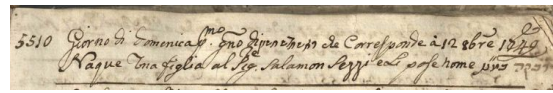 5510 Giorno di Domenica p.mo giorno di che Corresponde à 12 8bre 1749
Naque Una figlia al Sig. Salamon Pezzi e Li pose nome רבקה